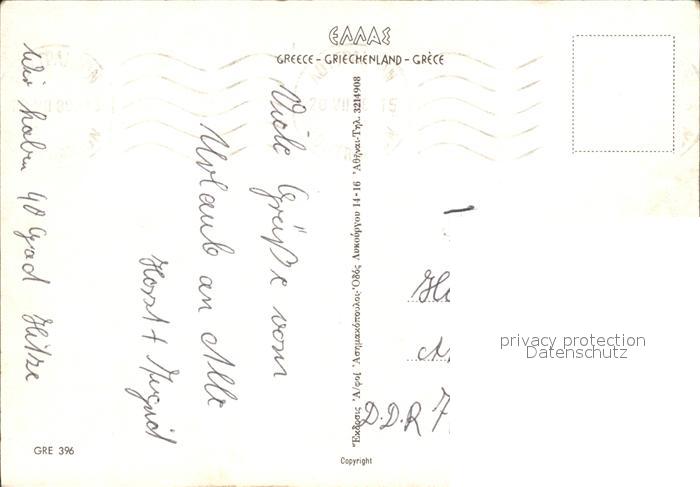 ΕΛΛΑΣ
GREECE - GRIECHENLAND - GRÈCE
Viele Grüße vom
Urlaub an Alle
Horst + Ingrid
Wir haben 40 Grad Hitze
Ἐκδόσεις Ἀ/φοί Ὁδὸς Λυκούργου 14-16 Ἀθῆναι-Τηλ. 3214908
D.D.R 7
privacy protection
Datenschutz
GRE 396
Copyright